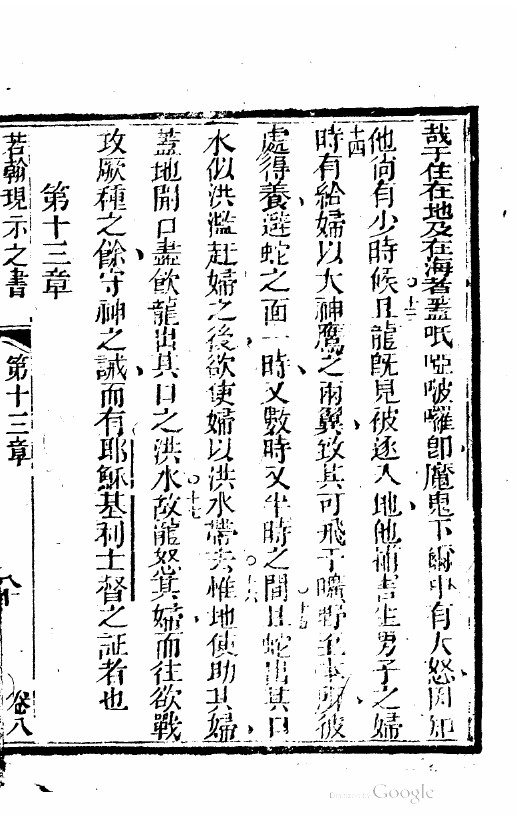 哉于住在地及在海者蓋呧啞嘙囉卽魔鬼下爾中有大怒因知
他尙有少時候十三且龍旣見被逐入地他捕害生男子之婦
十四時有給婦以大神鷹之兩翼致其可飛于曠野至本所彼
處得養避蛇之面一時又數時又半時之間十五且蛇出其口
水似洪濫赶婦之後欲使婦以洪水帶去十六惟地使助其婦
蓋地開口盡飮龍出其口之洪水十七故龍怒其婦而往欲戰
攻厥種之餘守神之誡而有耶穌基利士督之証者也
第十三章
若翰現示之書
第十三章
八十
卷八
Digitized by Google